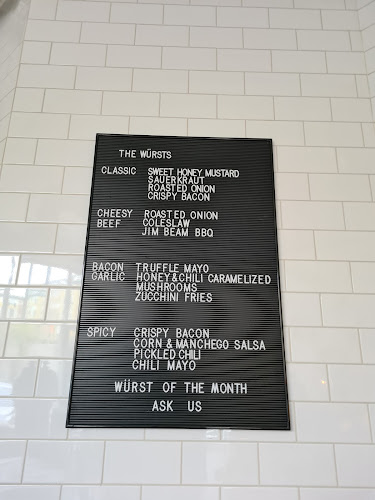 THE WÜRSTS
CLASSIC SWEET HONEY MUSTARD
SAUERKRAUT
ROASTED ONION
CRISPY BACON
CHEESY ROASTED ONION
BEEF COLESLAW
JIM BEAM BBQ
BACON TRUFFLE MAYO
GARLIC HONEY & CHILI CARAMELIZED
MUSHROOMS
ZUCCHINI FRIES
SPICY CRISPY BACON
CORN & MANCHEGO SALSA
PICKLED CHILI
CHILI MAYO
WÜRST OF THE MONTH
ASK US